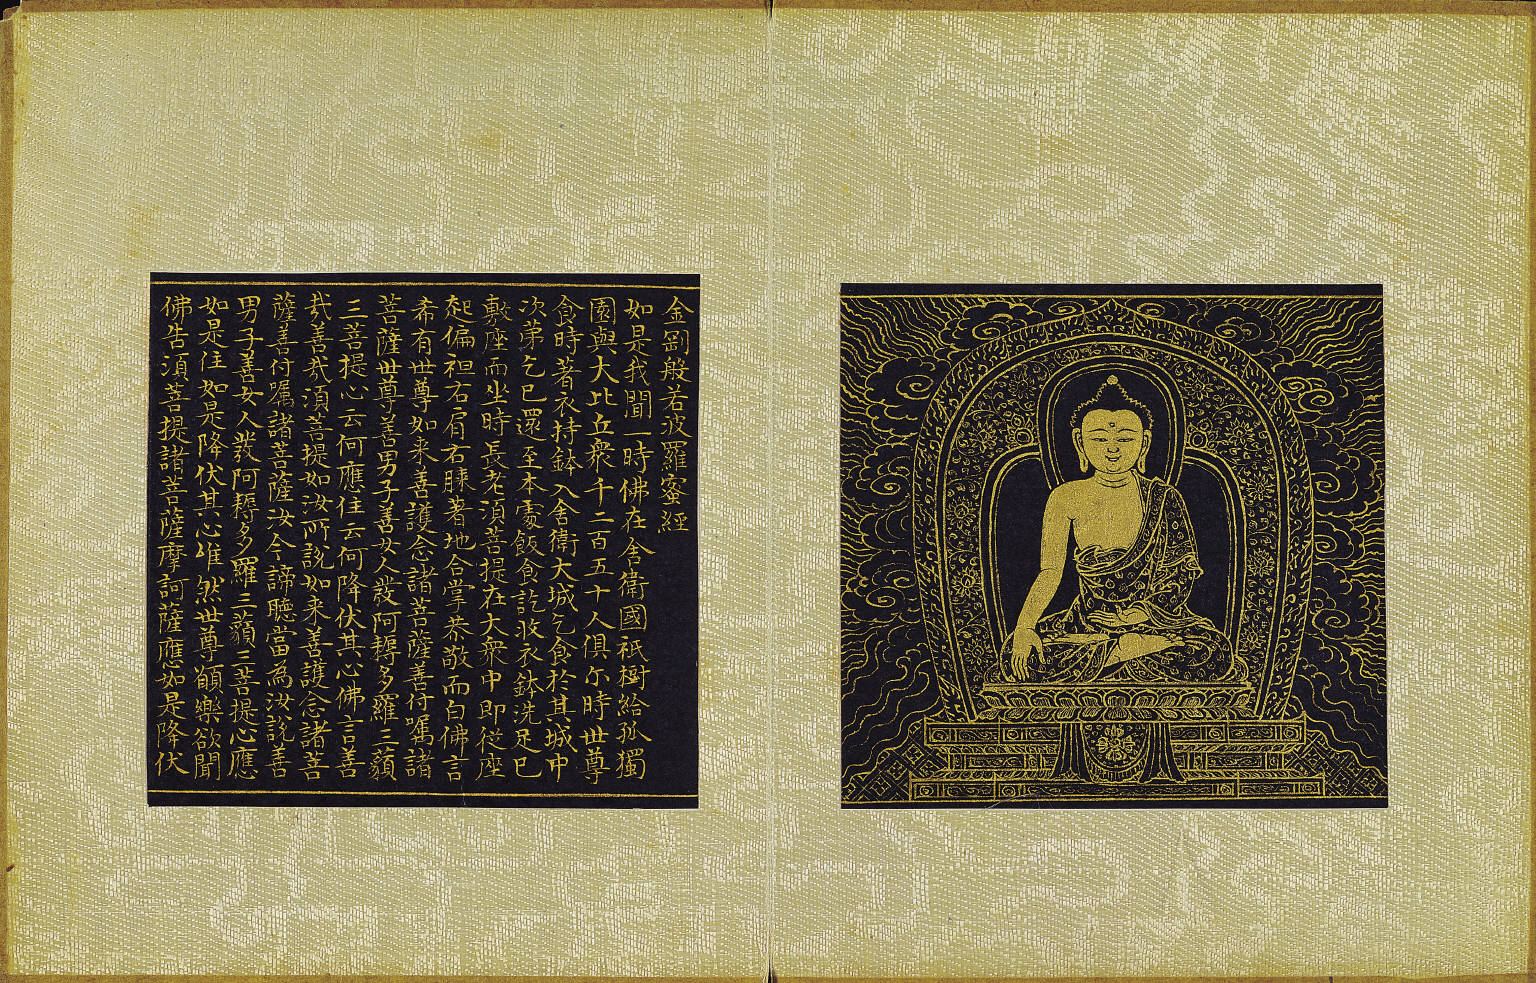 金剛般若波羅蜜經
如是我聞一時佛在舍衛國祇樹給孤獨
園與大比丘衆千二百五十人俱尒時世尊
食時著衣持鉢入舍衛大城乞食於其城中
次第乞已還至本處飯食訖收衣鉢洗足已
敷座而坐時長老湏菩提在大衆中即從座
起偏袒右肩右膝著地合掌恭敬而白佛言
希有世尊如来善護念諸菩薩善付囑諸
菩薩世尊善男子善女人發阿耨多羅三藐
三菩提心云何應住云何降伏其心佛言善
哉善哉湏菩提如汝所說如来善護念諸菩
薩善付囑諸菩薩汝今諦聽當為汝說善
男子善女人發阿耨多羅三藐三菩提心應
如是住如是降伏其心唯然世尊願樂欲聞
佛告湏菩提諸菩薩摩訶薩應如是降伏